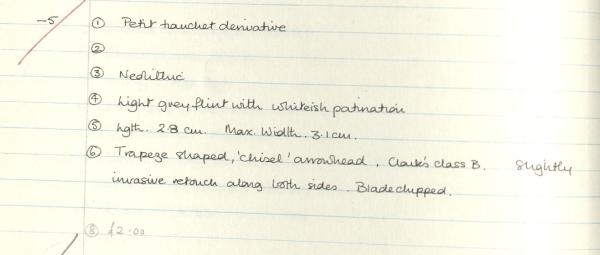 -5
① Petit tranchet derivative
②
③ Neolithic
④ Light grey flint with whiteish patination
⑤ lgth. 2.8 cm. Max. Width. 3.1 cm.
⑥ Trapeze shaped, 'chisel' arrowhead, Clark's class B. Slightly
invasive retouch along both sides. Blade chipped.
⑧ £2.00